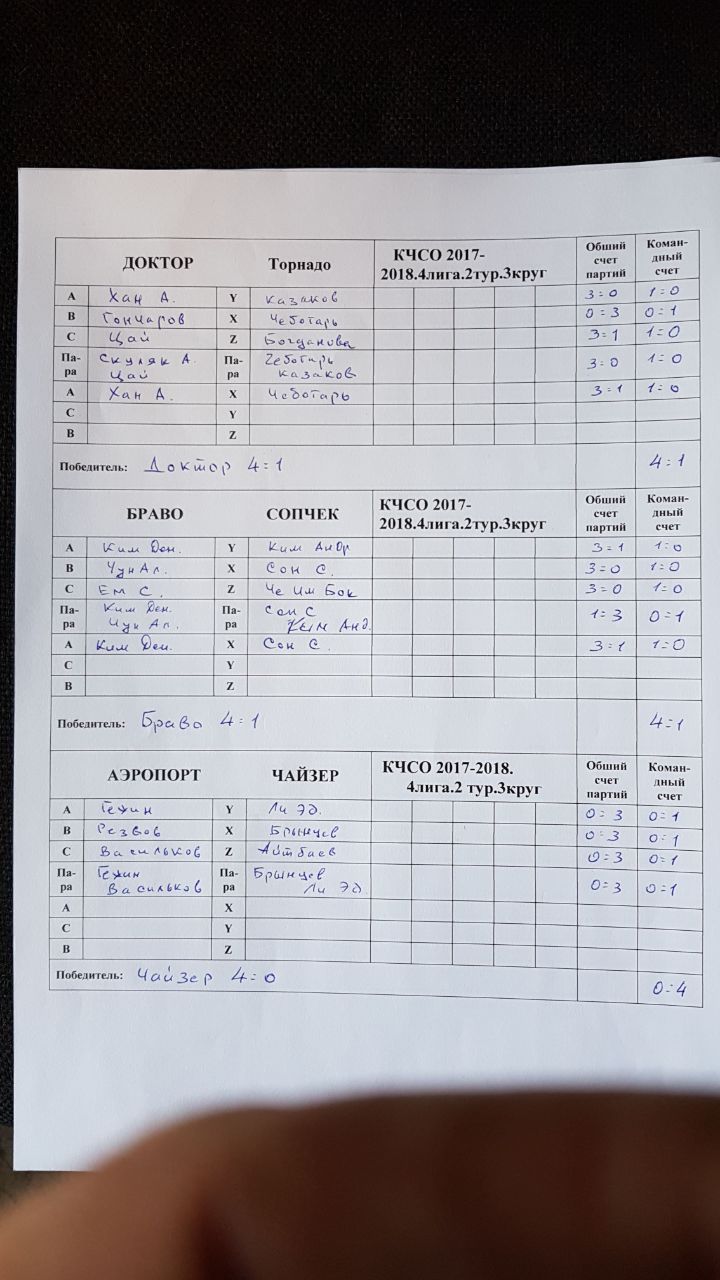 ДОКТОР Торнадо КЧСО 2017- Общий Коман-
2018.4лига.2тур.3круг счет дный
партий счет
A Хан А. Y Казаков 3:0 1:0
B Гончаров X Чеботарь 0:3 0:1
C Цай Z Богданова 3:1 1:0
Па- Скуляк А. Па- Чеботарь 3:0 1:0
ра Цай ра Казаков
A Хан А. X Чеботарь 3:1 1:0
C Y
B Z
Победитель: Доктор 4:1 4:1
БРАВО СОПЧЕК КЧСО 2017- Общий Коман-
2018.4лига.2тур.3круг счет дный
партий счет
A Ким Ден. Y Ким Андр 3:1 1:0
B Чун Ал. X Сон С. 3:0 1:0
C Ем С. Z Че Им Бок 3:0 1:0
Па- Ким Ден. Па- Сон С 1:3 0:1
ра Чун Ал. ра Ким Анд.
A Ким Ден. X Сон С. 3:1 1:0
C Y
B Z
Победитель: Браво 4:1 4:1
АЭРОПОРТ ЧАЙЗЕР КЧСО 2017-2018. Общий Коман-
4лига.2 тур.3круг счет дный
партий счет
A Гежин Y Ли Эд. 0:3 0:1
B Резвов X Брынцев 0:3 0:1
C Васильков Z Айтбаев 0:3 0:1
Па- Гежин Па- Брынцев 0:3 0:1
ра Васильков ра Ли Эд
A X
C Y
B Z
Победитель: Чайзер 4:0 0:4